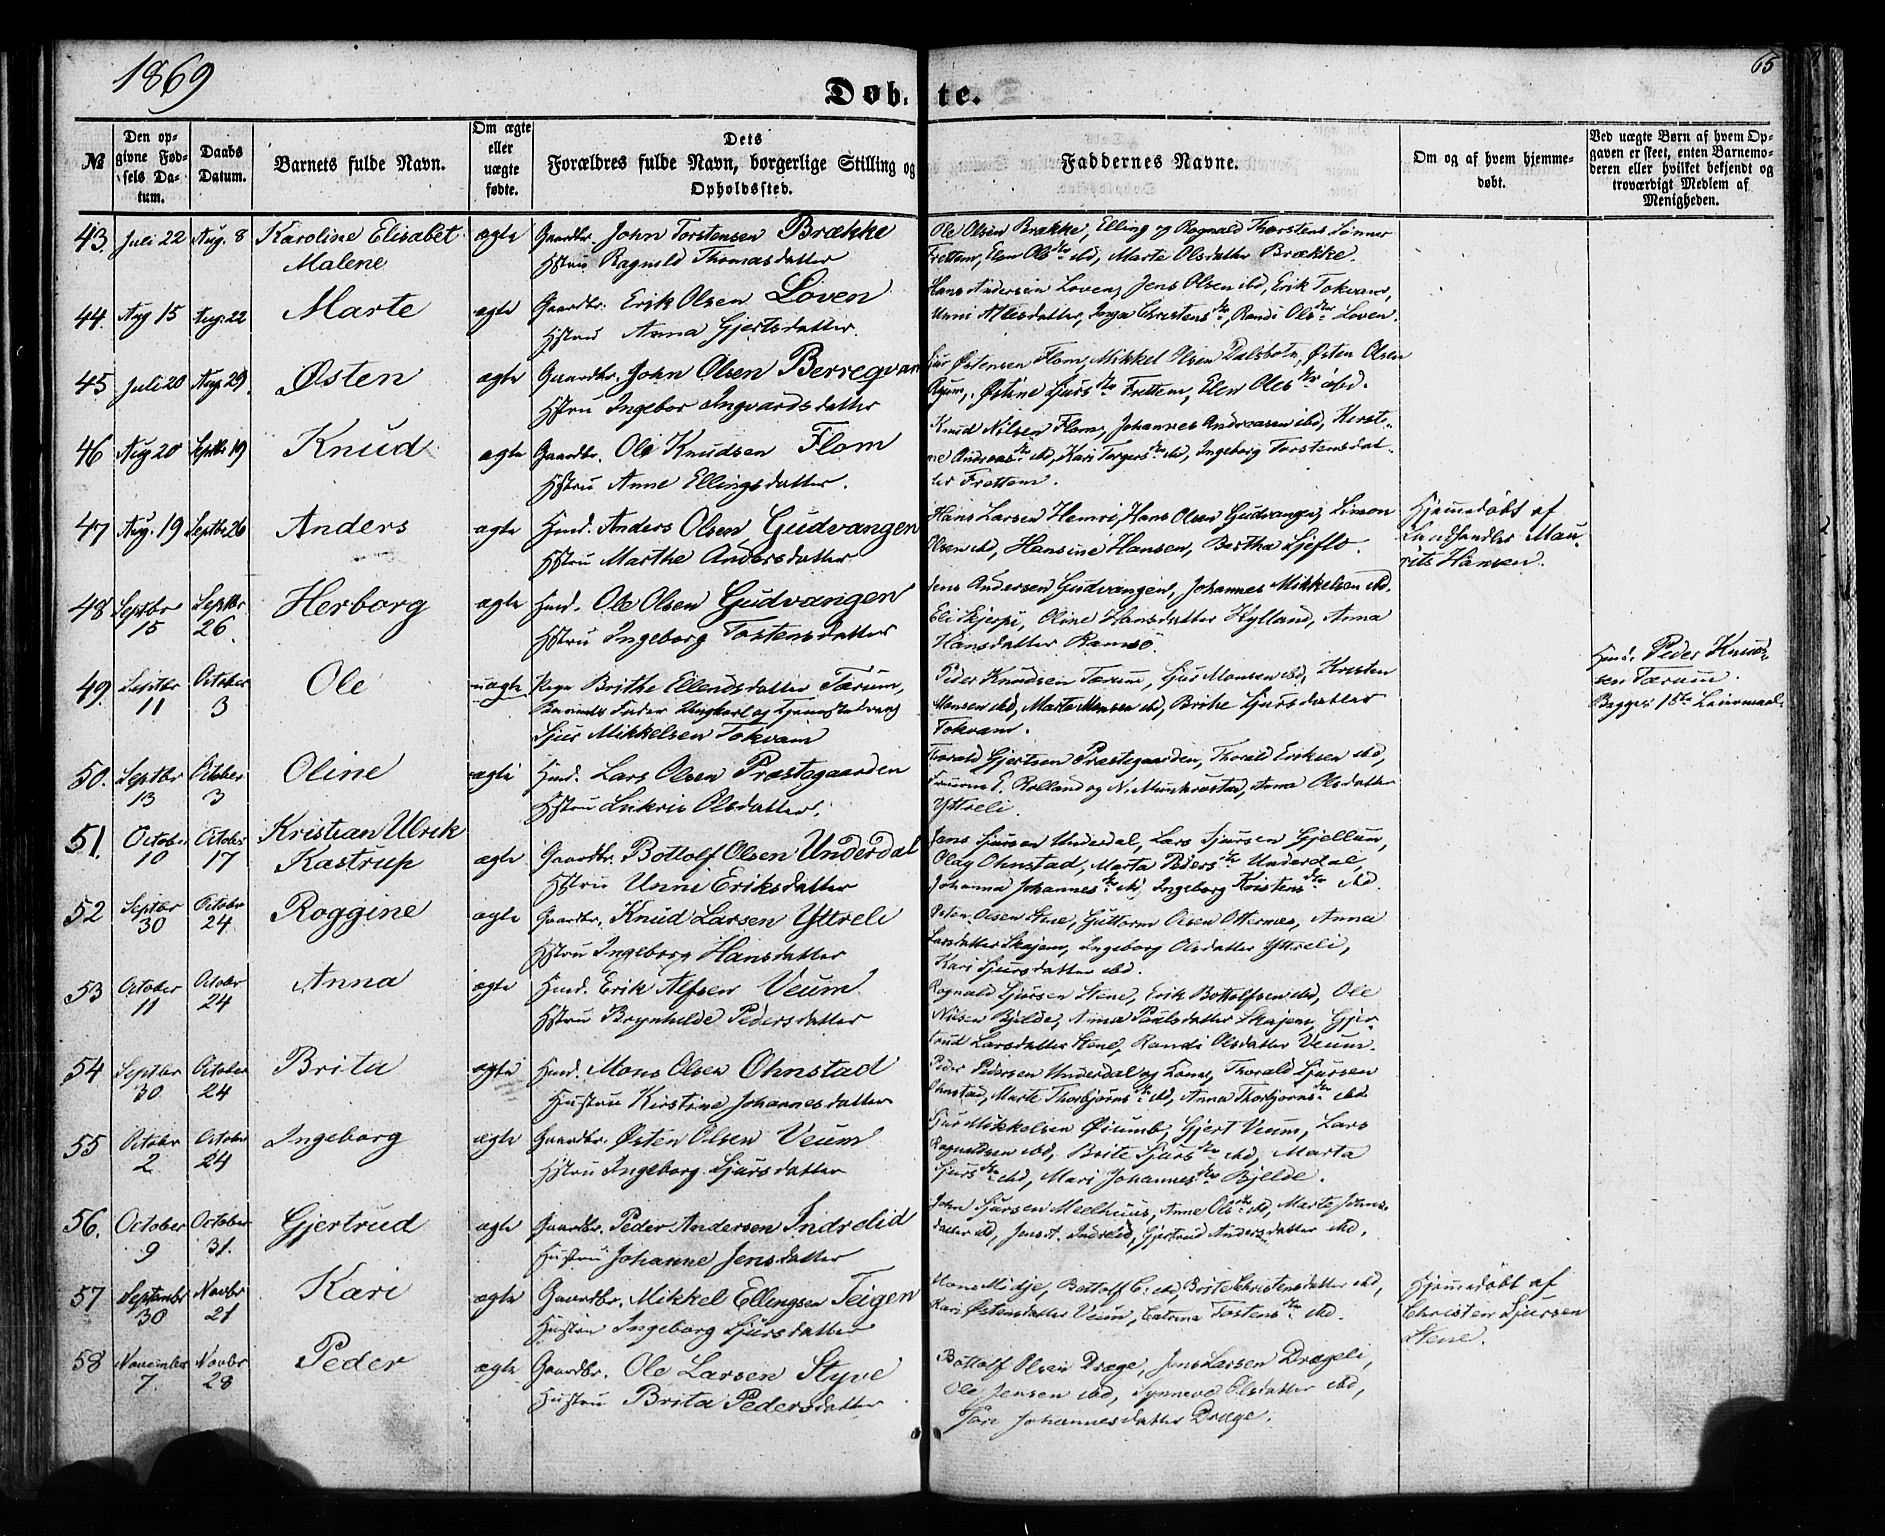 1869
65
Døbte.
№
Den opgivne Fødsels Datum.
Daabs Datum.
Barnets fulde Navn.
Om ægte eller uægte fødte.
Dets Forældres fulde Navn, borgerlige Stilling og Opholdssted.
Faddernes Navne.
Om og af hvem hjemmedøbt.
Ved uægte Børn af hvem Opgaven er skeet, enten Barnemoderen eller hvilket bekjendt og troværdigt Medlem af Menigheden.
43. Juli 22 Aug. 8 Karoline Elisabet Malene ægte Gaardbr. John Torstensen Brække
Hstru Ragnild Thomasdatter
Ole Olsen Brække, Elling og Rognald Thorstens Sønner
Frettem, Elen Ols dtr ibd, Marte Olsdatter Brække.
44. Aug 15 Aug. 22 Marte ægte Gaardbr. Erik Olsen Loven
Hstru Anna Gjertsdatter.
Hans Andersen Loven, Jens Olsen ibd, Erik Tokvam,
Unni Atlesdatter, Inga Christens dtr, Randi Ols dtr Loven.
45 Juli 20 Aug 29. Østen ægte Gaardbr. John Olsen Berreqvam
Hstru Ingebor Ingvardsdatter
Sjur Østensen Flom, Mikkel Olsen Dalsbotn, Østen Olsen
Ryum, Østine Sjurs dtr Frettem, Elen Oles dtr ibd.
46 Aug 20 Septbr 19 Knud ægte Gaardbr. Ole Knudsen Flom
Hstru Anne Ellingsdatter.
Knud Nilsen Flom, Johannes Andreasen ibd, Kersti-
ne Andreas dtr ibd, Kari Torgers dtr ibd, Ingeborg Torstensdat-
ter Frettem.
47 Aug. 19 Septbr 26 Anders ægte Hmd. Anders Olsen Gudvangen
Hstru Marthe Andersdatter
Hans Larsen Hemri, Hans Olsen Gudvangen, Simon
Olsen ibd, Hansine Hansen, Bertha Sjeflo.
Hjemmedøbt af
Landhandler Mau-
rits Hansen.
48 Septbr 15 Septbr 26. Herborg ægte Hmd. Ole Olsen Gudvangen
Hstru Ingeborg Tostensdatter
Jens Andersen Gudvangen, Johannes Mikkelsen ibd.
Eli Skjerpi, Oline Hansdatter Hylland, Anna
Hansdatter Ramsø.
49. Septbr 11 October 3 Ole uægte Pige Brithe Ellendsdatter Tærum,
Barnets Fader Ungkarl og Tjenestedreng
Sjur Mikkelsen Tokvam
Peder Knudsen Tærum, Sjur Monsen ibd, Kristen
Monsen ibd, Marta Monsen ibd, Brithe Sjursdatter
Tokvam.
Hmd. Peder Knud-
sen Tærum.
Begges 1ste Leiermaal.
50. Septbr 13 October 3 Oline ægte Hmd. Lars Olsen Præstegaarden
Hstru Lukris Olsdatter.
Torald Gjertsen Præstegaarden, Thorald Eriksen ibd,
Fruerne E. Rolland og N. Munkvestad, Anna Olsdatter
Yttreli
51. October 10 October 17 Kristian Ulrik Kastrup ægte Gaardbr. Bottolf Olsen Underdal
Hstru Unni Eriksdatter
Jens Sjursen Underdal, Lars Sjursen Gjellum,
Olag Ohnstad, Marta Peders dtr Underdal,
Johanna Johannes dtr ibd, Ingeborg Kristens dtr ibd.
52 Septbr 30 October 24 Roggine ægte Gaardbr. Knud Larsen Yttreli
Hstru Ingeborg Hansdatter
Østen Olsen Stene, Guttorm Olsen Otternes, Anna
Larsdatter Skajem, Ingeborg Olsdatter Yttreli,
Kari Sjursdatter ibd.
53 October 11 Octobr 24 Anna ægte Hmd. Erik Alfsen Veum
Hstru Brynhilde Pedersdatter
Rognald Sjursen Stene, Erik Bottolfsen ibd, Ole
Nilsen Bjelde, Anna Poulsdatter Skajem, Gjer-
trud Larsdatter Stene, Randi Olsdatter Veum.
54 Septbr 30 October 24 Brita ægte Hmd. Mons Olsen Ohnstad
Hustru Kirstine Johannesdatter
Peder Pedersen Underdal og Kone, Thorald Sjursen
Ohnstad, Marte Thorbjørns dtr ibd, Anna Thorbjørns dtr ibd
55 Octobr 2. October 24 Ingeborg ægte Gaardbr. Østen Olsen Veum
Hstru Ingeborg Sjursdatter
Sjur Mikkelsen Øiumb, Gjert Veum, Lars
Rognaldsen ibd, Brite Sjurs dtr ibd, Marta
Sjurs dtr ibd, Mari Johannes dtr Bjelde.
56. October 9 October 31. Gjertrud ægte Gaardbr. Peder Andersen Indrelid
Hustru Johanne Jensdatter
John Sjursen Meelhuus, Anne Ols dtr ibd, Marte Johns-
datter ibd, Jens A. Indrelid, Gjertrud Andersdatter ibd.
57 September 30 Novbr 21 Kari ægte Gaardbr. Mikkel Ellingsen Teigen
Hustru Ingeborg Sjursdatter
Hans Midje, Bottolf C. ibd, Brite Christensdatter ibd,
Kari Østensdatter Veum, Catrina Tostens dtr ibd.
Hjemmedøbt af
Christen Sjursen
Stene.
58 November 7. Novbr 28 Peder ægte Gaardbr. Ole Larsen Styve
Hustru Brita Pedersdatter
Bottolf Olsen Dræge, Jens Larsen Drægeli,
Ole Jensen ibd, Synneve Olsdatter ibd,
Kari Johannesdatter Dræge.